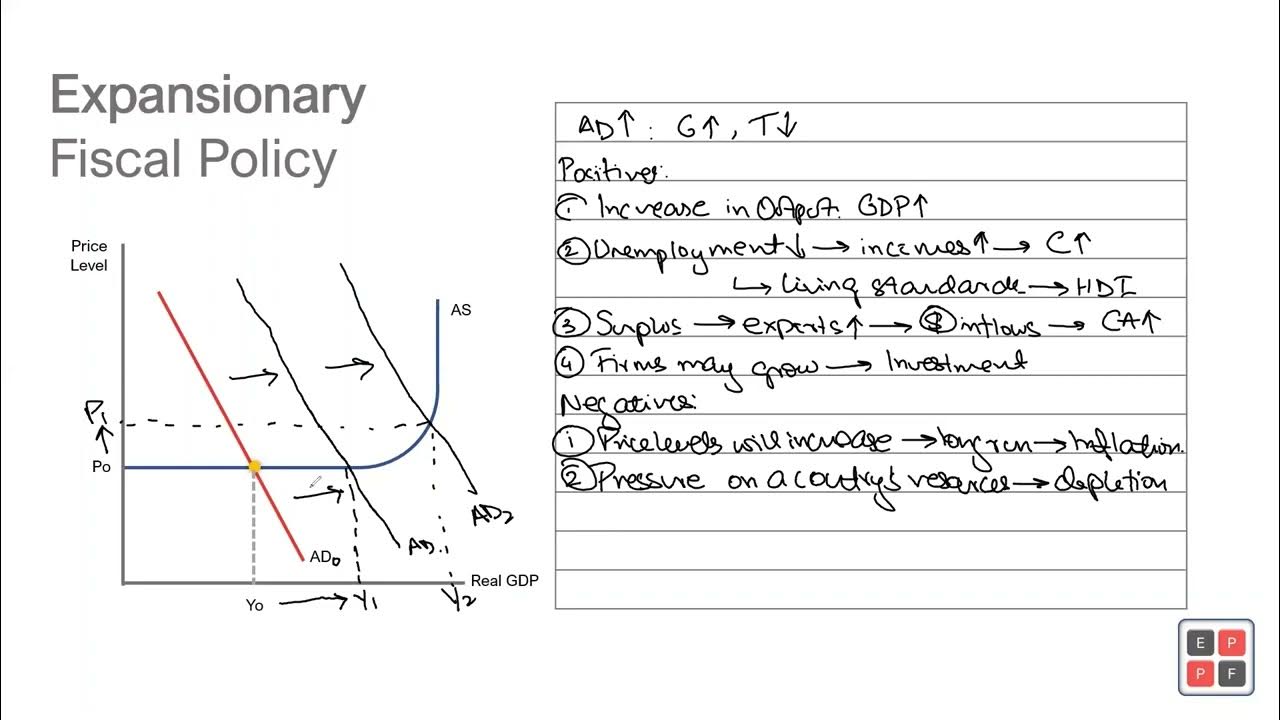 Expansionary
Fiscal Policy
AD↑ : G↑, T↓
Positives:
① Increase in Output. GDP↑
② Unemployment↓ → incomes↑ → C↑
↳ living standards → HDI
③ Surplus → exports↑ → $ inflows → CA↑
④ Firms may grow → Investment
Negatives:
① Price levels will increase → long run → Inflation.
② Pressure on a country's resources → depletion
Price
Level
AS
P₁
↑
Po
AD₀
AD₁
AD₂
Real GDP
Yo → Y₁
Y₂
E P
P F